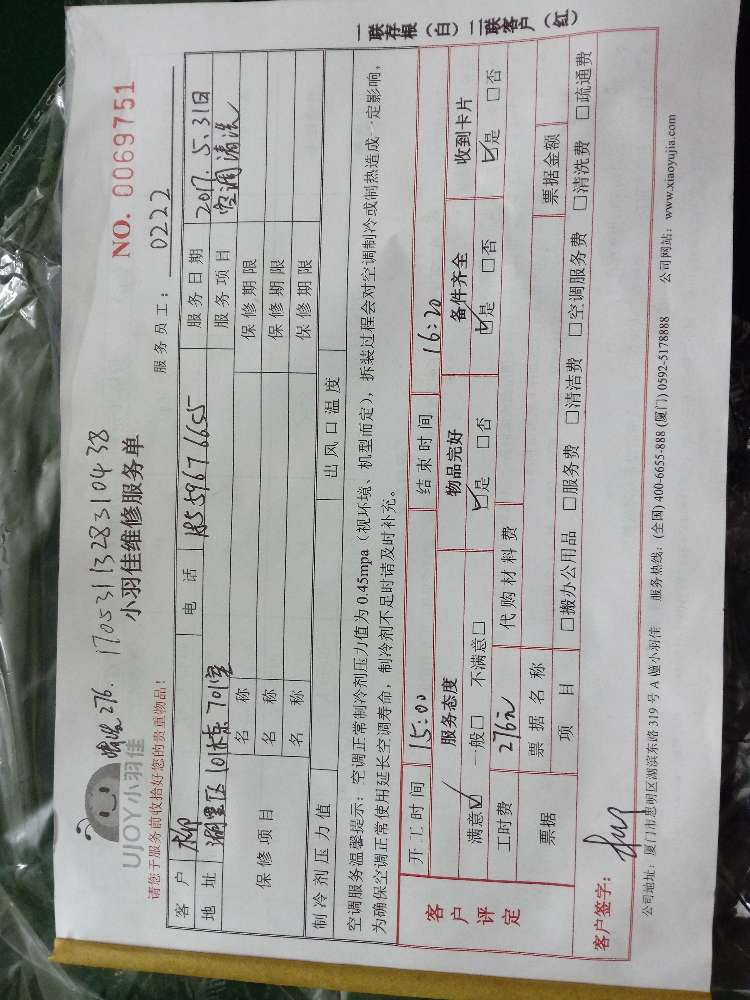 一联存根（白）二联客户（红）
清洗276. 170531132831043​8
UJOY小羽佳
小羽佳维修服务单
NO. 0069751
请您于服务前收拾好您的贵重物品！
服务员工： 0222
客户 柳 电话 18559676655 服务日期 2017.5.31日
地址 701室 服务项目 空调清洗
保修项目 名称 保修期限
名称 保修期限
名称 保修期限
制冷剂压力值 出风口温度
空调服务温馨提示：空调正常制冷剂压力值为0.45mpa（视环境、机型而定），拆装过程会对空调制冷或制热造成一定影响，
为确保空调正常使用延长空调寿命，制冷剂不足时请及时补充。
客户评定
开工时间 15:00 结束时间 16:20
服务态度 物品完好 备件齐全 收到卡片
满意☑ 一般□ 不满意□ ☑是 □否 ☑是 □否 ☑是 □否
工时费 276元 代购材料费
票据 票据名称 票据金额
项目 □搬办公用品 □服务费 □清洁费 □空调服务费 □清洗费 □疏通费
客户签字：
公司地址：厦门市思明区湖滨东路319号A幢小羽佳 服务热线：(全国) 400-6655-888 (厦门) 0592-5178888 公司网站：www.xiaoyujia.com